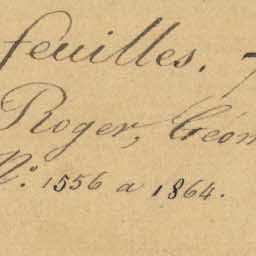 feuilles.
Roger, Géom
N.° 1556 a 1864.